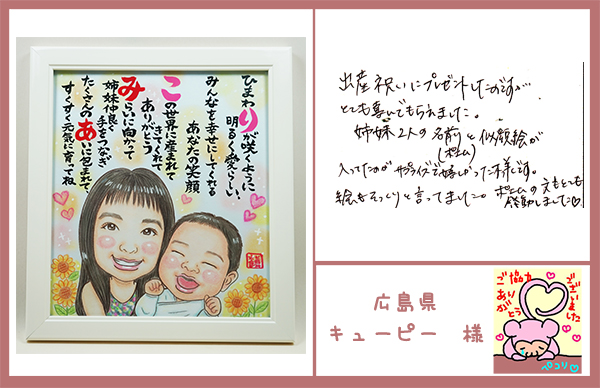 ひまわりが咲くように
明るく愛らしい
みんなを幸せにしてくれる
あなたの笑顔
この世界に産まれて
きてくれて
ありがとう
みらいに向かって
手をつなぎ
姉妹仲良く
たくさんのあいに包まれて
すくすく元気に育ってね
出産祝いにプレゼントしたのですが…
とても喜んでもらえました。
姉妹2人の名前と似顔絵が
(ポエム)
入ってたのが サプライズで嬉しかった様です。
絵もそっくりと言ってました。ポエムの文もとても
感動しました♡
広島県
キューピー 様
ご協力
ありがとう
ございました
ペコリ